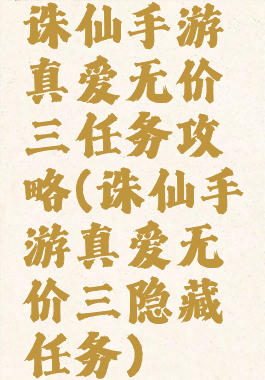 诛仙手游
真爱无价
三任务攻
略(诛仙手
游真爱无
价三隐藏
任务)